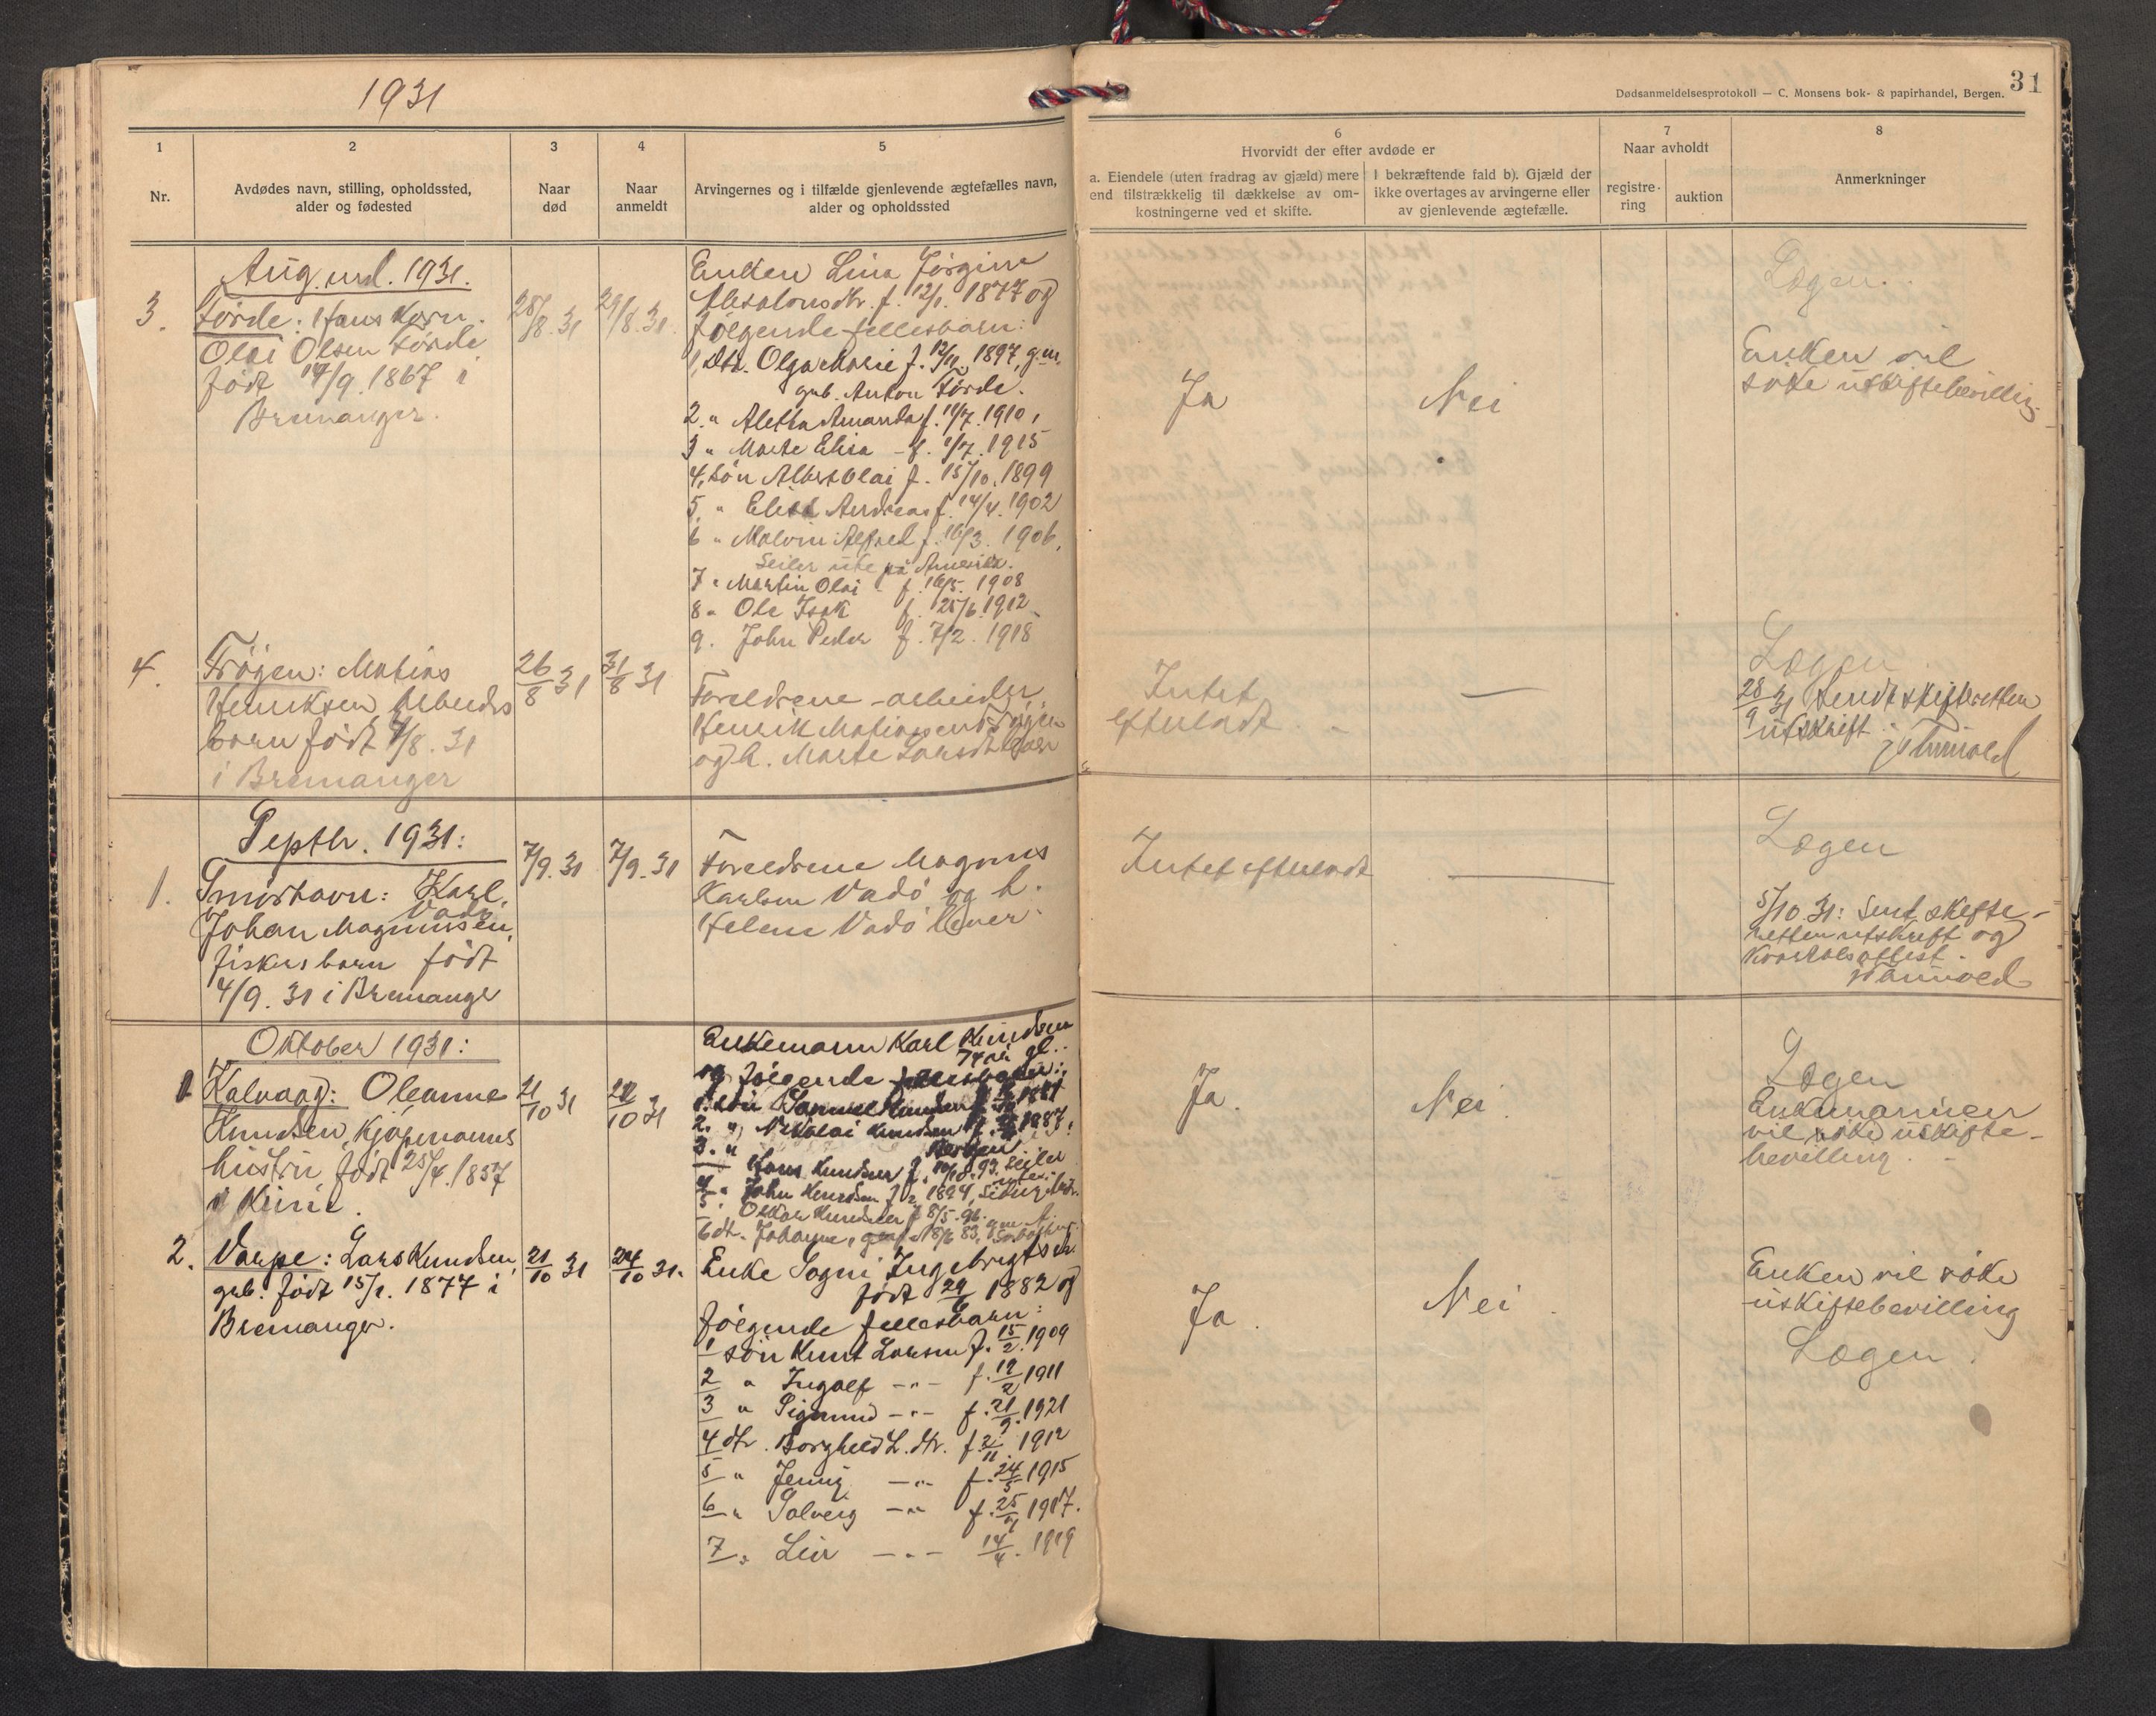 1931
31
Dødsanmeldelsesprotokoll — C. Monsens bok- & papirhandel, Bergen.
1
Nr.
2
Avdødes navn, stilling, opholdssted,
alder og fødested
3
Naar
død
4
Naar
anmeldt
5
Arvingernes og i tilfælde gjenlevende ægtefælles navn,
alder og opholdssted
6
Hvorvidt der efter avdøde er
a. Eiendele (uten fradrag av gjæld) mere
end tilstrækkelig til dækkelse av om-
kostningerne ved et skifte.
I bekræftende fald b). Gjæld der
ikke overtages av arvingerne eller
av gjenlevende ægtefælle.
7
Naar avholdt
registre-
ring
auktion
8
Anmerkninger
Aug. md. 1931.
3.
Förde: Hans
Olai Olsen Förde
født 14/9. 1867 i
Bremanger.
28/8. 31
29/8. 31.
Enken Lina Jörgine
Absalonsdtr. f. 12/1. 1877 og
følgende fellesbarn:
1, Dtr. Olga Marie f. 12/11 1897, g.m.
gub. Anton Förde.
2. " Aletta Amanda f. 10/7. 1910,
3 " Marte Elisa - f. 1/7. 1915
4, sön Albert Olai f. 15/10. 1899
5. " Elias Andreas f. 14/4. 1902
6 " Malvin Alfred f. 16/3. 1906,
Seiler ute på Amerika.
7 " Martin Olai - f. 16/5. 1908
8 " Ole Isak f. 25/6. 1912
9. John Peder f. 7/2. 1918
Ja
Nei
Lægen.
Enken vil
söke uskiftebevilling
4.
Fröyen: Matias
Henriksen Arbeider
barn født 7/8. 31
i Bremanger
26/8 31
31/8 31
Foreldrene - arbeider
Henrik Matiassen Fröyen
og h. Marte Larsdtr lever
Intet
efterladt
—
Lægen
28/9 31 Sendt skifteretten
utskrift.
Septbr. 1931:
1.
Smörhavn: Karl
Vadö
Johan Magnussen,
fiskers barn født
4/9. 31 i Bremanger
7/9. 31
7/9. 31
Foreldrene Magnus
Karlsen Vadö og h.
Helene Vadö lever.
Intet efterladt
—
Lægen
5/10. 31: Sent skifte-
retten utskrift og
kvartalsattest.
Oktober 1931:
1
Kalvaag: Oleanne
Knudsen, kjöpmanns
hustru, født 25/4. 1857
i Kinn.
21/10 31
21/10 31
Enkemann Karl Knudsen
74 år gl.
og følgende fellesbarn:
1. sön Samuel Knudsen f. 1881
2. " Nikolai Knudsen f. 1887.
3. " Bergen
Hans Knudsen f. 10/10. 93. Seiler
4 " John Knudsen f. 1894,
5. Oskar Knudsen f 8/5. 96.
6 dtr. Johanne, f 18/6 83,
Ja.
Nei.
Lægen
Enkemannen
vil söke uskifte-
bevilling.
2.
Varpe: Lars Knudsen,
gub. født 15/1. 1877 i
Bremanger.
21/10 31
24/10 31.
Enke Sogni Ingebrigtsdtr.
født 29/6 1882 og
følgende fellesbarn:
1 sön Knut Larsen f. 15/2. 1909
2 " Ingolf -"- f. 12/2 1911
3 " Sigmund -"- f. 21/9. 1921
4 dtr. Borghild L.dtr. f. 2/11. 1912
5 " Jenny -"- f. 24/5 1915
6 " Solveig -"- f. 25/9 1917.
7 " Liv -"- 14/4. 1919
Ja.
Nei.
Enken vil söke
uskiftebevilling
Lægen.